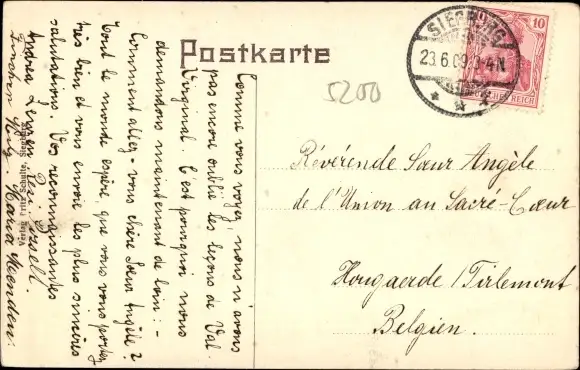 Postkarte
SIEGBURG
23.6.09. 3-4N
10
DEUTSCHES REICH
5200
Révérende Sœur Angèle
de l'Union au Sacré-Cœur
Hougaerde / Tirlemont
Belgien.
Comme vous voyez, nous n'avons
pas encore oublié les leçons de Val
Virginal. C'est pourquoi nous
demandons maintenant de loin: -
Comment allez-vous chère Sœur Angèle?
Tout le monde espère, que vous vous portez
très bien et vous envoie les plus sincères
salutations. Vos reconnaissantes
Verlag Fritz Schulte, Siegburg
Maria